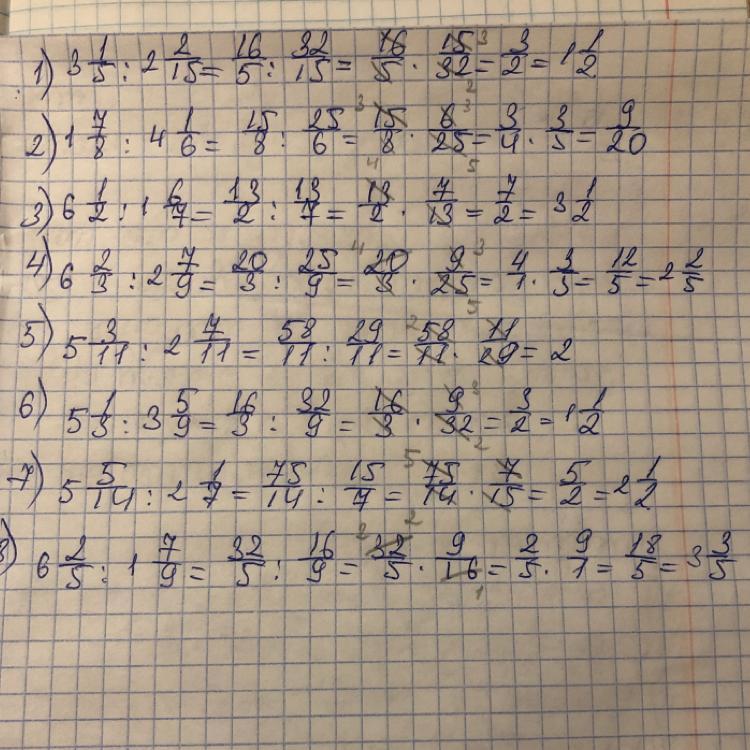 1) 3 1/5 : 2 2/15 = 16/5 : 32/15 = 16/5 · 15/32 = 3/2 = 1 1/2
2) 1 7/8 : 4 1/6 = 15/8 : 25/6 = 15/8 · 6/25 = 3/4 · 3/5 = 9/20
3) 6 1/2 : 1 6/7 = 13/2 : 13/7 = 13/2 · 7/13 = 7/2 = 3 1/2
4) 6 2/3 : 2 7/9 = 20/3 : 25/9 = 20/3 · 9/25 = 4/1 · 3/5 = 12/5 = 2 2/5
5) 5 3/11 : 2 7/11 = 58/11 : 29/11 = 58/11 · 11/29 = 2
6) 5 1/3 : 3 5/9 = 16/3 : 32/9 = 16/3 · 9/32 = 3/2 = 1 1/2
7) 5 5/14 : 2 1/7 = 75/14 : 15/7 = 75/14 · 7/15 = 5/2 = 2 1/2
8) 6 2/5 : 1 7/9 = 32/5 : 16/9 = 32/5 · 9/16 = 2/5 · 9/1 = 18/5 = 3 3/5